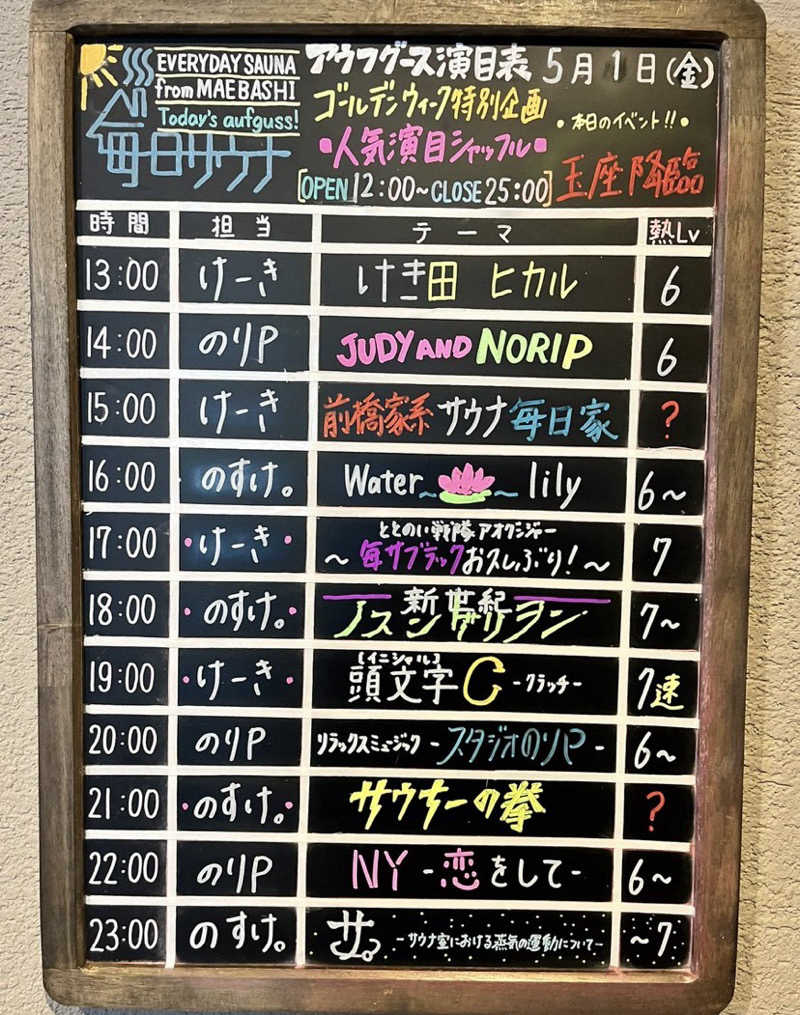 EVERYDAY SAUNA
from MAEBASHI
Today's aufguss!
毎日サウナ
アウフグース演目表 5月1日(金)
ゴールデンウィーク特別企画
•人気演目シャッフル•
•本日のイベント!!•
[OPEN 12:00~CLOSE 25:00] 玉座降臨
時間 担当 テーマ 熱Lv
13:00 けーき けき田 ヒカル 6
14:00 のりP JUDY AND NORIP 6
15:00 けーき 前橋家系サウナ毎日家 ?
16:00 のすけ。 Water~ ~lily 6~
ととのい戦隊アオグジャー
17:00 •けーき• ~毎サブラックお久しぶり!~ 7
18:00 •のすけ。• 新世紀 ノスンゲリヨン 7~
[イニシャル]
19:00 •けーき• 頭文字C -クラッチ- 7速
20:00 のりP リラックスミュージック -スタジオのりP- 6~
21:00 •のすけ。• サウナーの拳 ?
22:00 のりP NY -恋をして- 6~
23:00 のすけ。 サ。 -サウナ室における蒸気の運動について- ~7